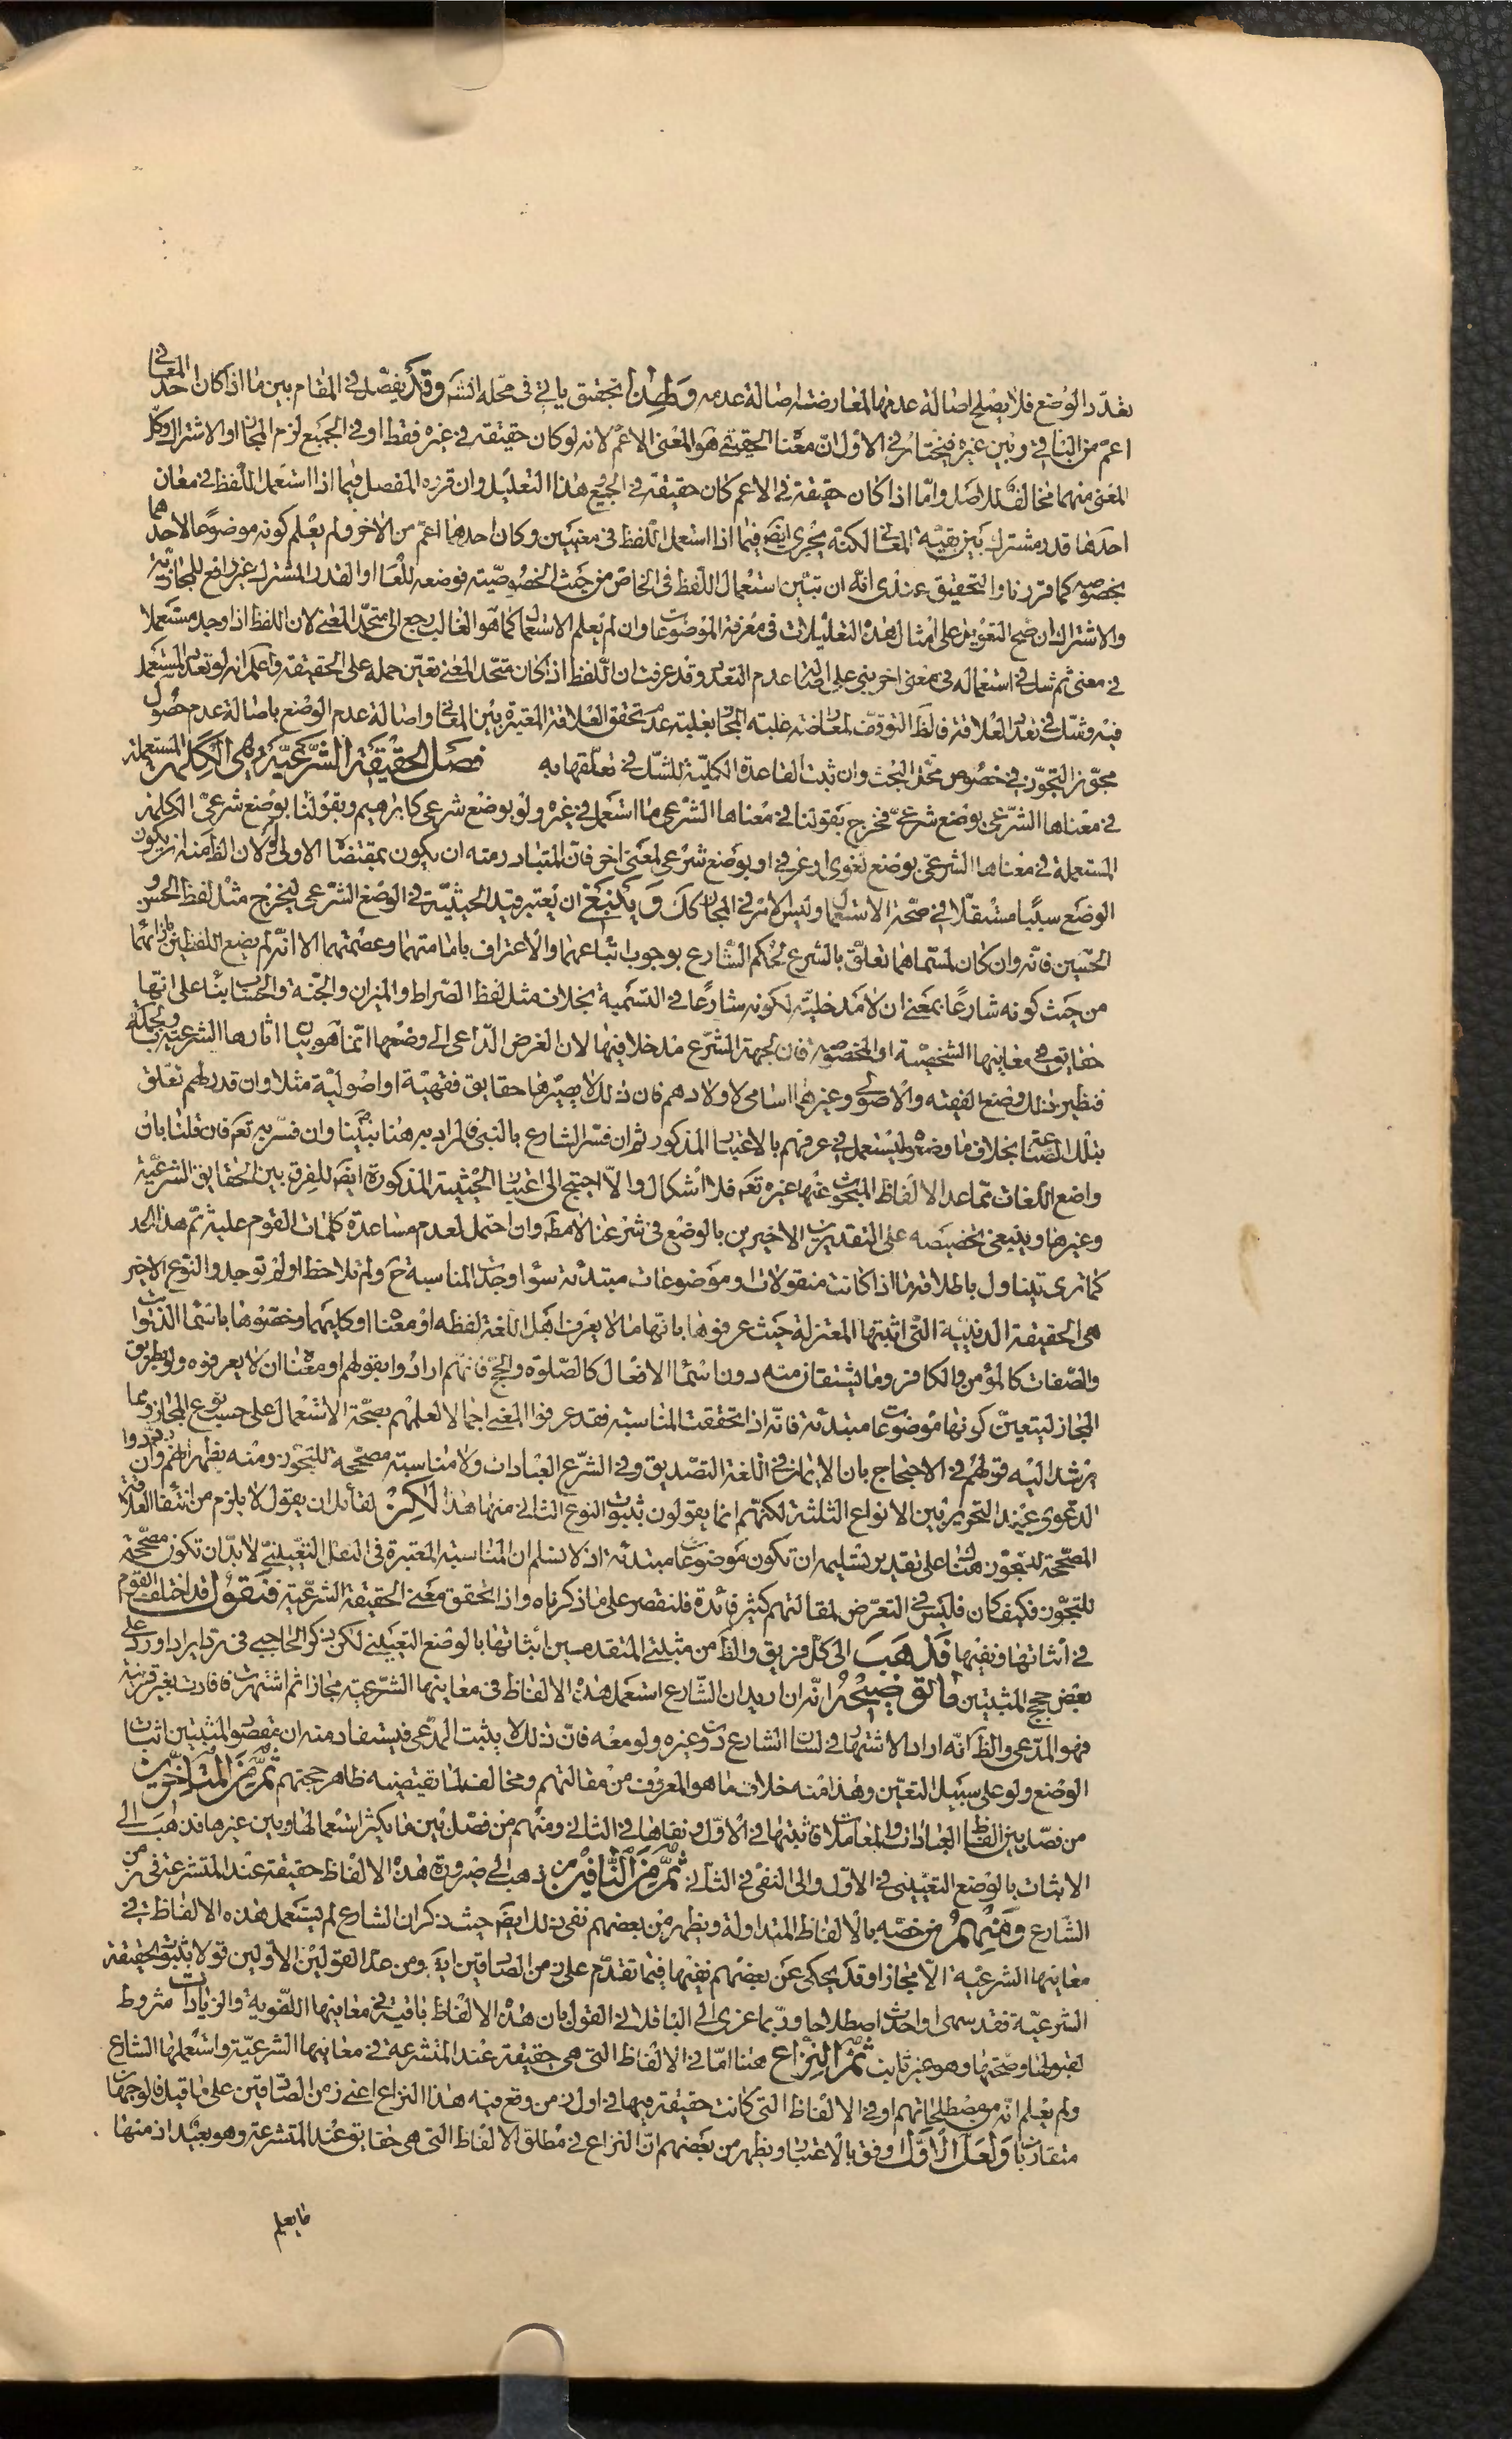 تعدّد الوضع فلا يصلح اصالة عدمها لمعارضته اصالة عدمه ولهذا تحقيق ياتى فى محله انشه وقد يفصّل فى المقام بين ما اذا كان احد المعانى
اعمّ من الباقى وبين غيره فيختار فى الاوّل انّ معناه الحقيقى هو المعنى الاعمّ لانه لو كان حقيقة فى غيره فقط او فى الجميع لزم المجاز او الاشتراك وكل
المعنى منهما مخالف للاصل وامّا اذا كان حقيقة فى الاعم كان حقيقة فى الجميع هذا التعليل وان قرره المفصل فيما اذا استعمل اللّفظ فى معان
احدها قدر مشترك بين بقيّة المعانى لكنّه يجرى ايضا فيما اذا استعمل اللّفظ فى معنيين وكان احدهما اعمّ من الاخر ولم يعلم كونه موضوعًا لاحدهما
بخصوصه كما قررنا والتحقيق عندى انّه ان تبيّن استعمال اللّفظ فى الخاصّ من حيث الخصوصيّة فوضعه للعام او القدر المشترك غير رافع للمجازيّة
والاشتراك ان صح التعويل على امثال هذه التعليلات فى معرفة الموضوعات وان لم يعلم الاستعمال كما هو الغالب رجع الى متحد المعنى لان اللفظ اذا وجد مستعملا
فى معنى ثم شك فى استعماله فى معنى اخر بنى على اصالة عدم التعدد وقد عرفت ان اللّفظ اذا كان متّحد المعنى تعيّن حمله على الحقيقة واعلم انه لو تعدد المستعمل
فيه وشكّ فى تعدد العلاقة فالظ التوقف لمعارضة غلبة المجاز بغلبة عدم تحقق العلاقة المعتبرة بين المعانى واصالة عدم الوضع باصالة عدم حصول
مجوّز التجوّز فى خصوص محلّ البحث وان ثبت القاعدة الكليّة للشكّ فى تعلّقها به فصل الحقيقة الشّرعيّة هى الكلمة المستعملة
فى معناها الشّرعى بوضع شرعىّ فخرج بقولنا فى معناها الشّرعى ما استعمل فى غيره ولو بوضع شرعى كابراهيم وبقولنا بوضع شرعىّ الكلمة
المستعملة فى معناها الشرعىّ بوضع لغوى او عرفى او بوضع شرعى لمعنى اخر فانّ المتبادر منه ان يكون بمقتضاه الاولى ولان الظ منه ان يكون
الوضع سببا مستقلّا فى صحّة الاستعمال وليس الامر فى المجاز كك وينبغى ان يعتبر قيد الحيثيّة فى الوضع الشّرعى ليخرج مثل لفظ الحسن و
الحسين فانّه وان كان لمسمّاهما تعلّق بالشرع لحكم الشّارع بوجوب اتّباعهما والاعتراف بامامتهما وعصمتهما الا انّه لم يضع اللفظين بازائهما
من حيث كونه شارعًا بمعنى ان لا مدخليّة لكونه شارعًا فى التّسمية بخلاف مثل لفظ الصّراط والميزان والجنّة والحساب بناء على انّها
حقايق فى معانيها الشخصيّة او المخصوصة فان لجهة الشّرع مدخلا فيها لان الغرض الدّاعى الى وضعها انّما هو بيان اثارها الشرعيّة وبالجملة
فنظير ذلك وضع الفقيه والاصولى وغيرهما اسامى لاولادهم فان ذلك لا يصيّرها حقايق فقهيّة او اصوليّة مثلا وان قدر لهم تعلّق
بتلك الصّناعة بخلاف ما وضعوه ليستعمل فى عرفهم بالاعتبار المذكور ثم ان فسّر الشارع بالنبى فالمراد به هنا نبيّنا وان فسّر به تعم فان قلنا بان
واضع اللّغات ممّا عدا الالفاظ المبحوث عنها غيره تعم فلا اشكال والاّ احتيج الى اعتبار الحيثية المذكورة ايضا للفرق بين الحقايق الشرعيّة
وغيرها وينبغى تخصيصه على التقديرين الاخيرين بالوضع فى شرعنا لا مطه وان احتمل لعدم مساعدة كلمات القوم عليه ثم هذا الحد
كما ترى يتناول باطلاقه ما اذا كانت منقولات او موضوعات مبتدئة سواء وجدت المناسبة ح ولم تلاحظ او لم توجد والنوع الاخير
هى الحقيقة الدينيّة التى اثبتها المعتزلة حيث عرفوها بانّها ما لا يعرف اهل اللّغة لفظه او معناه او كليهما وخصّوها باسماء الذوات
والصّفات كالمؤمن والكافر وما يشتقان منه دون اسماء الافعال كالصّلوة والحجّ فانّهم ارادوا بقولهم او معناه ان لا يعرفوه ولو بطريق
المجاز ليتعيّن كونها موضوعات مبتدئة فانّه اذا تحققت المناسبة فقد عرفوا المعنى اجمالا لعلمهم بصحّة الاستعمال على حسب نوع المجاز وربما
يرشد اليه قولهم فى الاحتجاج بان الايمان فى اللّغة التصديق وفى الشّرع العبادات ولا مناسبة مصحّحة للتجوّز ومنه يظهر انهم وان
الدعوى عند التحرير بين الانواع الثلثة لكنهم انما يقولون بثبوت النوع الثالث منها هذا لكن لقائل ان يقول لا يلزم من انتفاء العلاقة
المصحّحة للتجوّز هنا على تقدير تسليمه ان تكون موضوعات مبتدئة اذ لا نسلم ان المناسبة المعتبرة فى النقل التعيينى لا بدّ ان تكون مصحّحة
للتجوّز فكيف كان فليس فى التعرّض لمقالتهم كثير فائدة فلنقصر على ما ذكرناه واذا تحقق معنى الحقيقة الشرعيّة فنقول قد اختلف القوم
فى اثباتها ونفيها فذهب الى كلّ فريق والظ من مثبتى المتقدمين اثباتها بالوضع التعيينى لكن ذكر الحاجبى فى ردّ ايراد اورد على
بعض حجج المثبتين ما توضيحه انّه ان اريد ان الشّارع استعمل هذه الالفاظ فى معانيها الشّرعيّة مجازا ثم اشتهرت فافادت بغير قرينة
فهو المدّعى والظ انّه اراد الاشتهار فى لسان الشارع دون غيره ولو معه فانّ ذلك لا يثبت المدّعى فيستفاد منه ان مقصود المثبتين اثبات
الوضع ولو على سبيل التعيّن وهذا منه خلاف ما هو المعروف من مقالتهم ومخالف لما تقتضيه ظاهر حججهم ثمّ من المتاخرين
من فصّل بين الفاظ العبادات والمعاملات فاثبتها فى الاوّل ونفاها فى الثانى ومنهم من فصّل بين ما يكثر استعمالها وبين غيرها فذهب الى
الاثبات بالوضع التعيّنى فى الاوّل والى النفى فى الثانى ثمّ من النّافين من ذهب الى صيرورة هذه الالفاظ حقيقة عند المتشرعة فى زمن
الشّارع ومنهم من خصّه بالالفاظ المتداولة ويظهر من بعضهم نفى ذلك ايضا حيث ذكر ان الشارع لم يستعمل هذه الالفاظ فى
معانيها الشرعيّة الّا مجازا وقد يحكى عن بعضهم نفيها فيما تقدّم على زمن الصّادقين ايضا ومن عدّ القولين الاولين قولا بثبوت الحقيقة
الشرعيّة فقد سمى او احدث اصطلاحا وربّما عزى الى الباقلانى القول بان هذه الالفاظ باقية فى معانيها اللّغوية والزيادات شروط
لقبولها وصحّتها وهو غير ثابت ثمّ النزاع هنا امّا فى الالفاظ التى هى حقيقة عند المتشرعة فى معانيها الشرعيّة واستعملها الشارع
ولم يعلم انّه من مصطلحاتهم او فى الالفاظ التى كانت حقيقة فيها فى اول زمن وقع فيه هذا النزاع اعنى زمن الصّادقين على ما قيل فالوجهان
متقاربان ولعلّ الاوّل اوفق بالاعتبار ويظهر من بعضهم انّ النزاع فى مطلق الالفاظ التى هى حقايق عند المتشرعة وهو بعيد اذ منها
ما يعلم